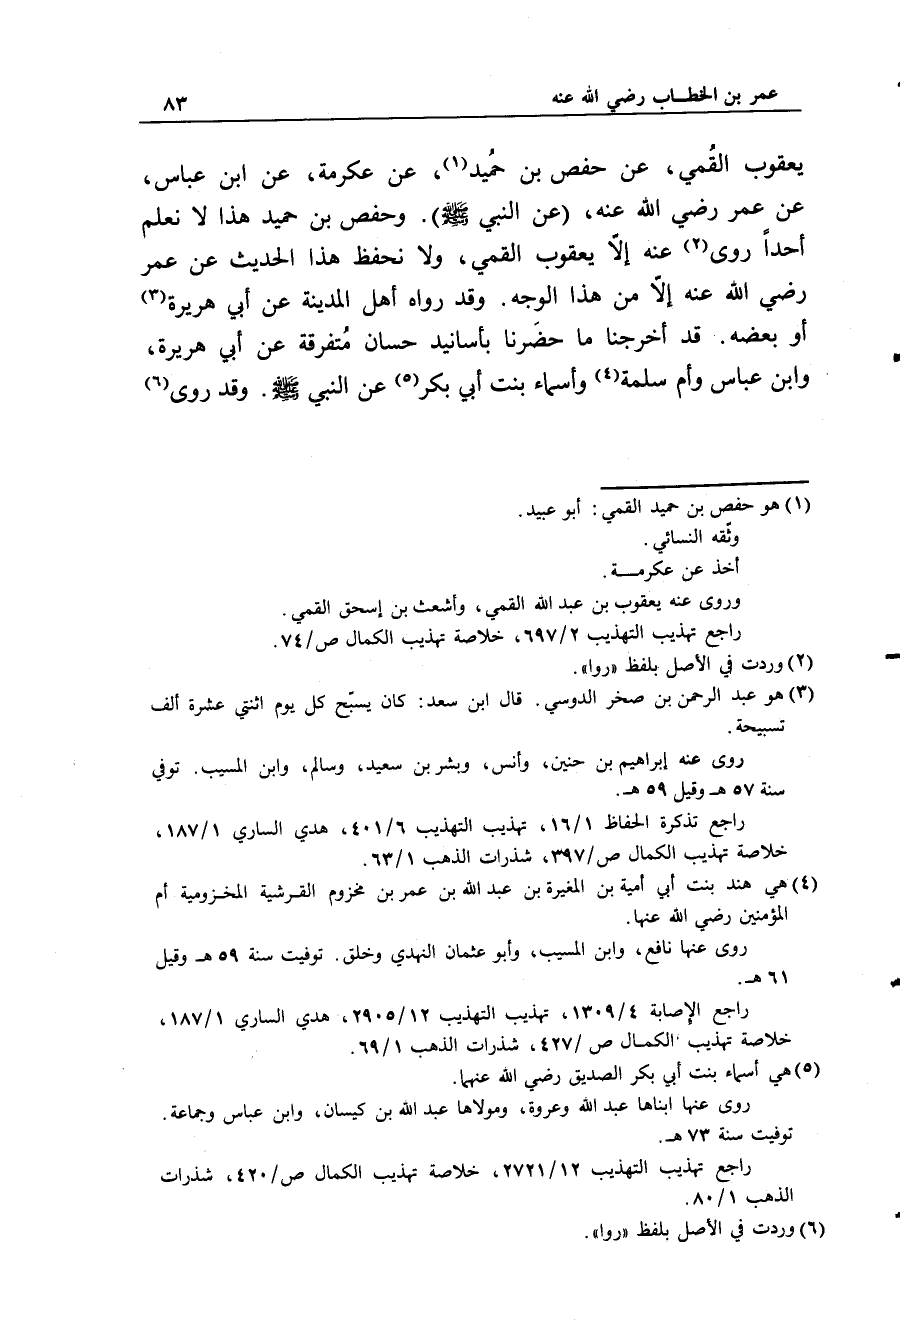 عمر بن الخطاب رضي الله عنه
٨٣
يعقوب القُمي، عن حفص بن حُميد(١)، عن عكرمة، عن ابن عباس،
عن عمر رضي الله عنه، (عن النبي ﷺ). وحفص بن حميد هذا لا نعلم
أحداً روى(٢) عنه إلّا يعقوب القمي، ولا نحفظ هذا الحديث عن عمر
رضي الله عنه إلّا من هذا الوجه. وقد رواه أهل المدينة عن أبي هريرة(٣)
أو بعضه. قد أخرجنا ما حضَرنا بأسانيد حسان مُتفرقة عن أبي هريرة،
وابن عباس وأم سلمة(٤) وأسماء بنت أبي بكر(٥) عن النبي ﷺ. وقد روى(٦)
(١) هو حفص بن حميد القمي: أبو عبيد.
وثّقه النسائي.
أخذ عن عكرمـــة.
وروى عنه يعقوب بن عبد الله القمي، وأشعث بن إسحق القمي.
راجع تهذيب التهذيب ٦٩٧/٢، خلاصة تهذيب الكمال ص/٧٤.
(٢) وردت في الأصل بلفظ «روا».
(٣) هو عبد الرحمن بن صخر الدوسي. قال ابن سعد: كان يسبّح كل يوم اثنتي عشرة ألف
تسبيحة.
روى عنه إبراهيم بن حنين، وأنس، وبشر بن سعيد، وسالم، وابن المسيب. توفي
سنة ٥٧ هـ وقيل ٥٩ هـ.
راجع تذكرة الحفاظ ١٦/١، تهذيب التهذيب ٤٠١/٦، هدي الساري ١٨٧/١،
خلاصة تهذيب الكمال ص/٣٩٧، شذرات الذهب ٦٣/١.
(٤) هي هند بنت أبي أمية بن المغيرة بن عبد الله بن عمر بن مخزوم القرشية المخزومية أم
المؤمنين رضي الله عنها.
روى عنها نافع، وابن المسيب، وأبو عثمان النهدي وخلق. توفيت سنة ٥٩ هـ وقيل
٦١ هـ.
راجع الإصابة ١٣٠٩/٤، تهذيب التهذيب ٢٩٠٥/١٢، هدي الساري ١٨٧/١،
خلاصة تهذيب الكمال ص /٤٢٧، شذرات الذهب ٦٩/١.
(٥) هي أسماء بنت أبي بكر الصديق رضي الله عنهما.
روى عنها ابناها عبد الله وعروة، ومولاها عبد الله بن كيسان، وابن عباس وجماعة.
توفيت سنة ٧٣ هـ.
راجع تهذيب التهذيب ٢٧٢١/١٢، خلاصة تهذيب الكمال ص/٤٢٠، شذرات
الذهب ٨٠/١.
(٦) وردت في الأصل بلفظ «روا».